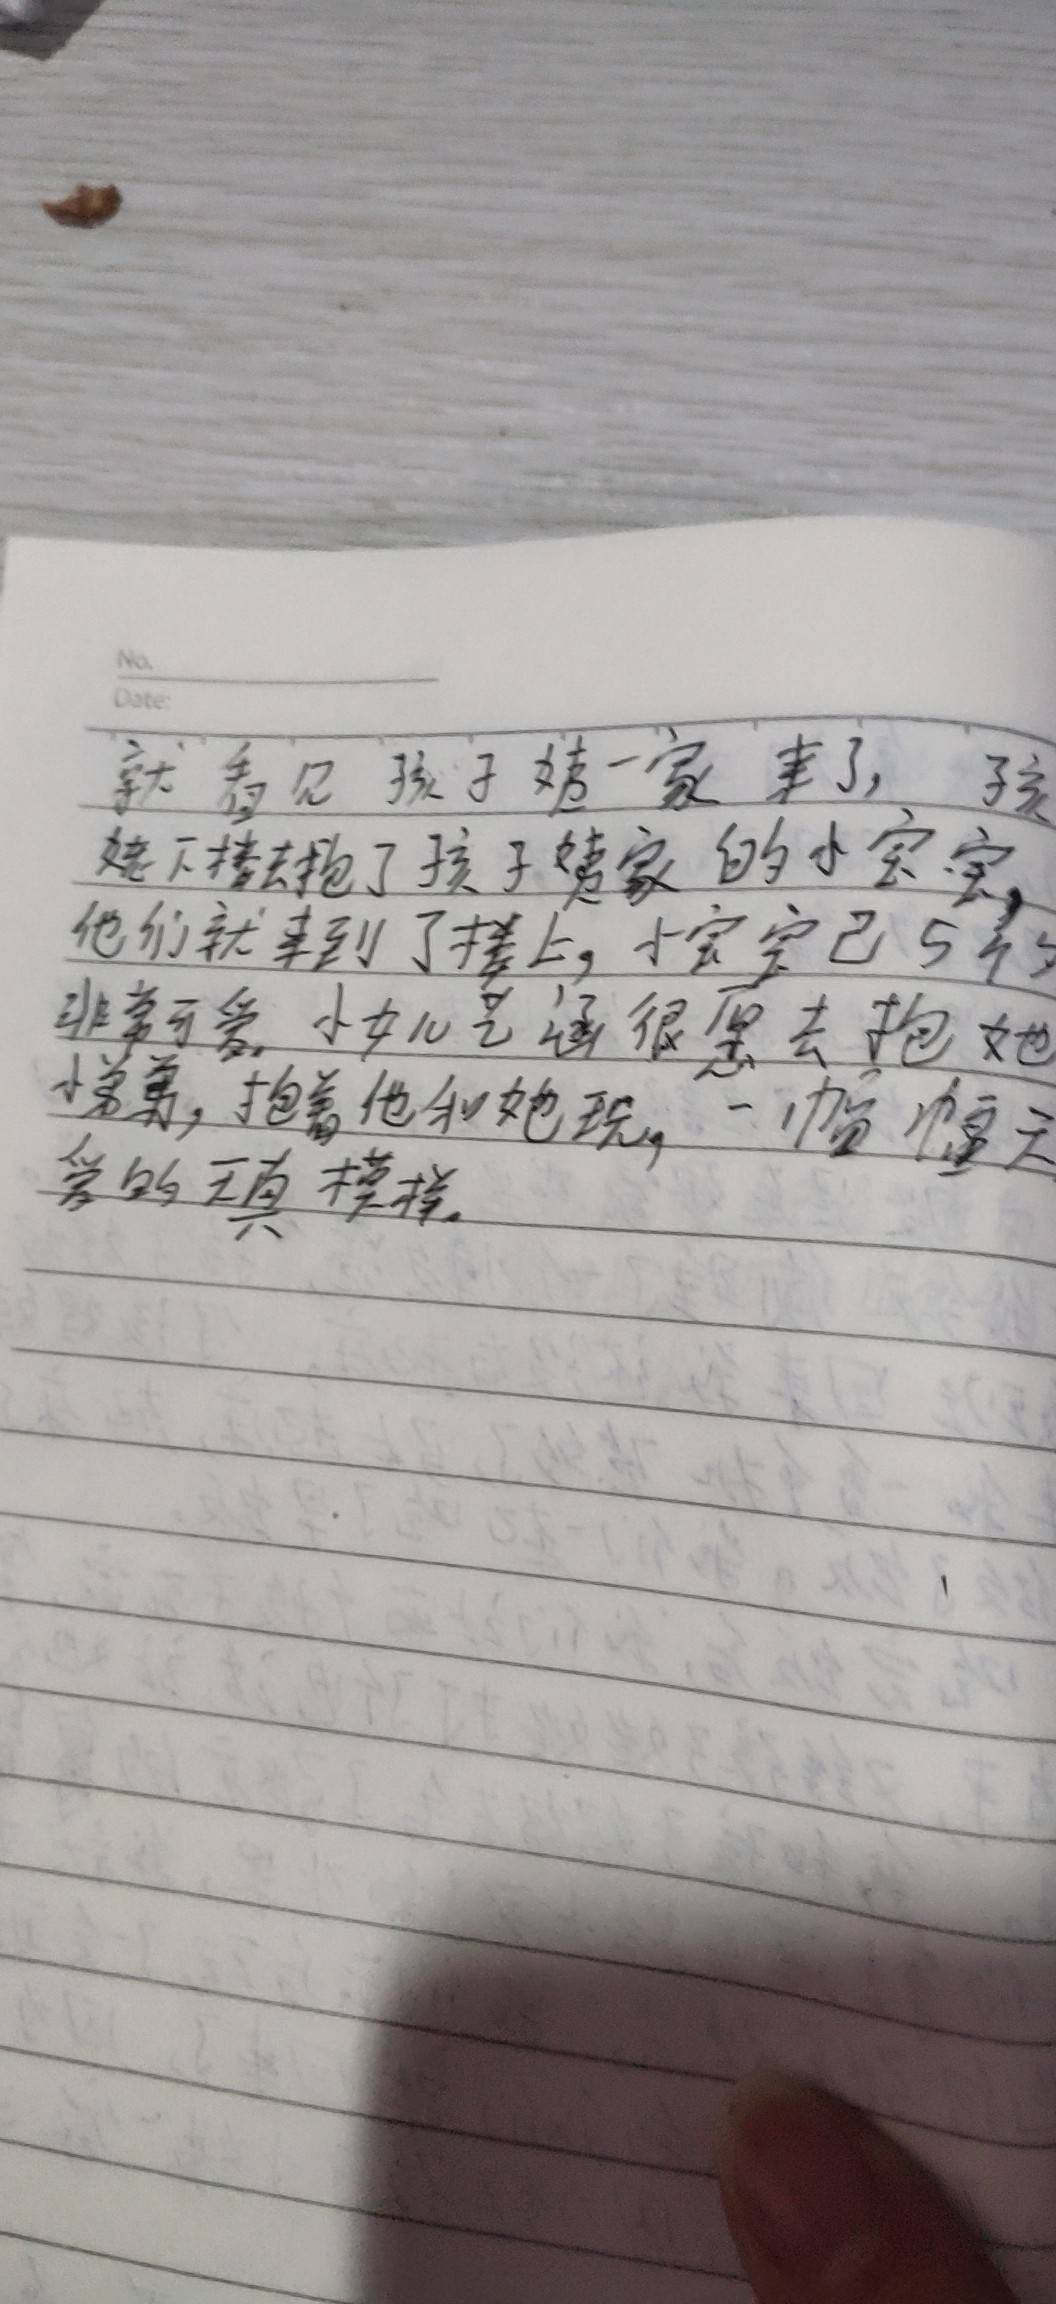 No.
Date:
就看见孩子姨一家来了，孩
姥下楼去抱了孩子姨家的小宝宝，
他们就来到了楼上，小宝宝已5个
非常可爱。小女儿艺涵很愿去抱她
小弟弟，抱着他和她玩，一幅幅
爱的天真模样。